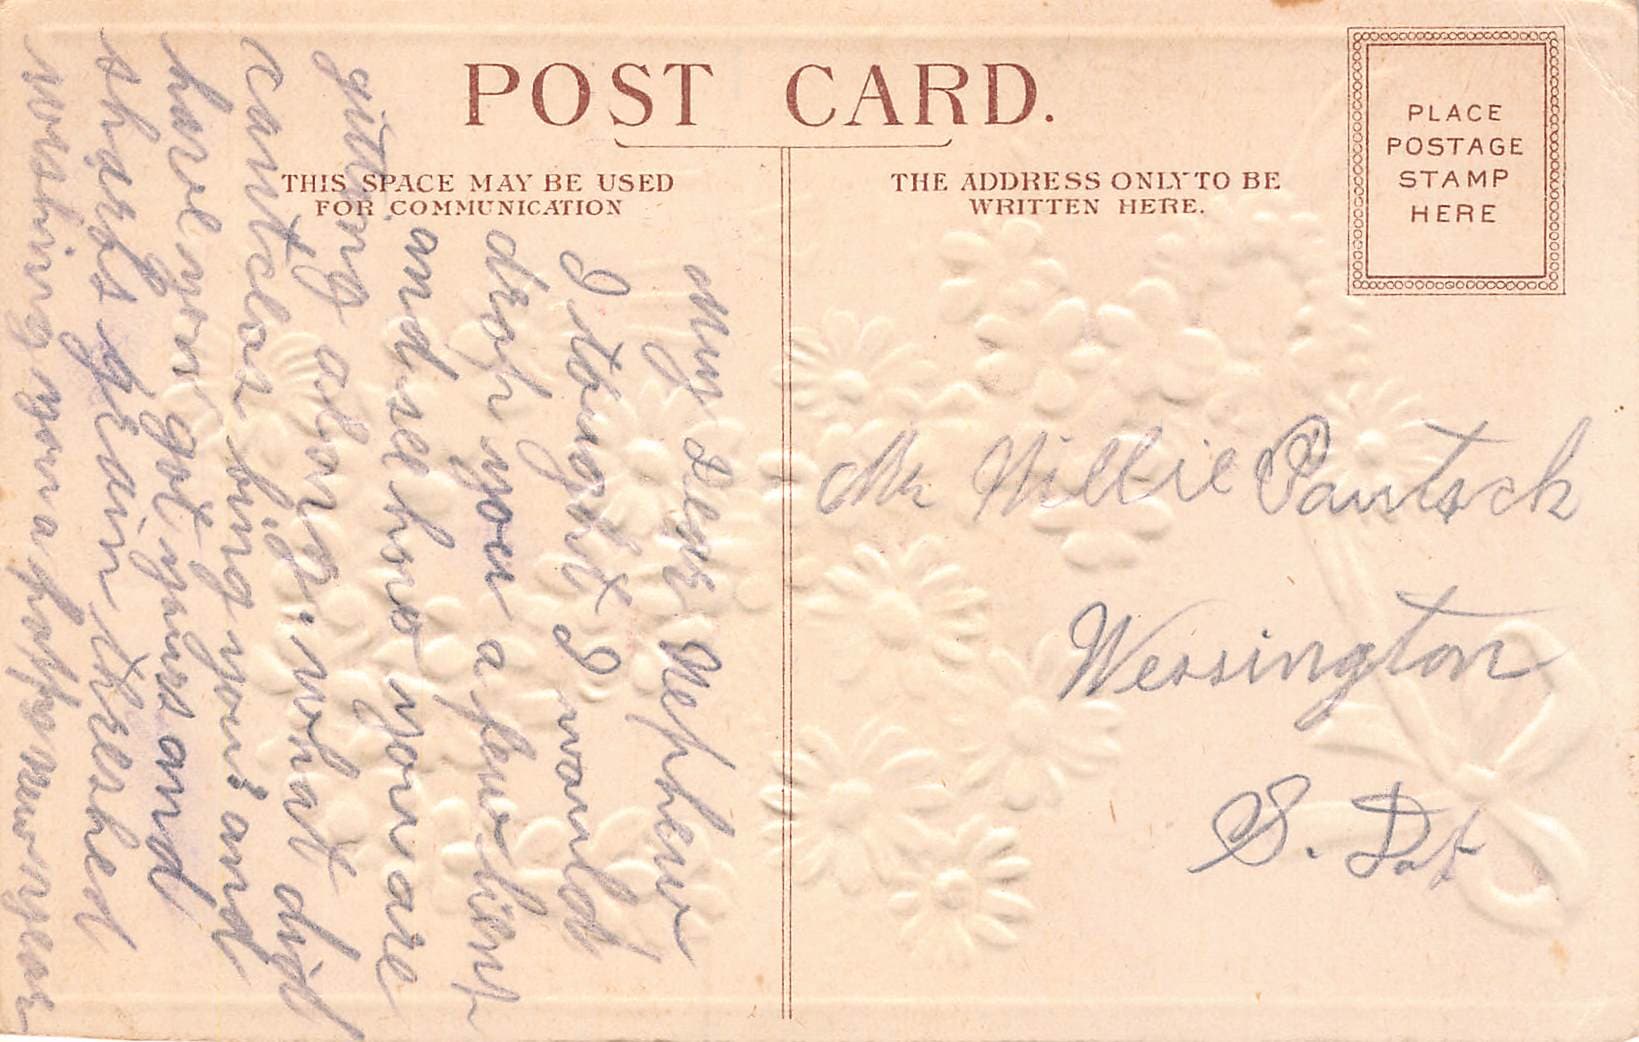 POST CARD.
THIS SPACE MAY BE USED
FOR COMMUNICATION
THE ADDRESS ONLY TO BE
WRITTEN HERE.
PLACE
POSTAGE
STAMP
HERE
My Dear Nephew
I tought I would
drop you a few
and see how you are
gitting along. what did
cantclos bring you? and
have you got yours and
shards grain threshed
wishing you a happy new year
Mr Willie Pautsch
Wessington
S. Dak